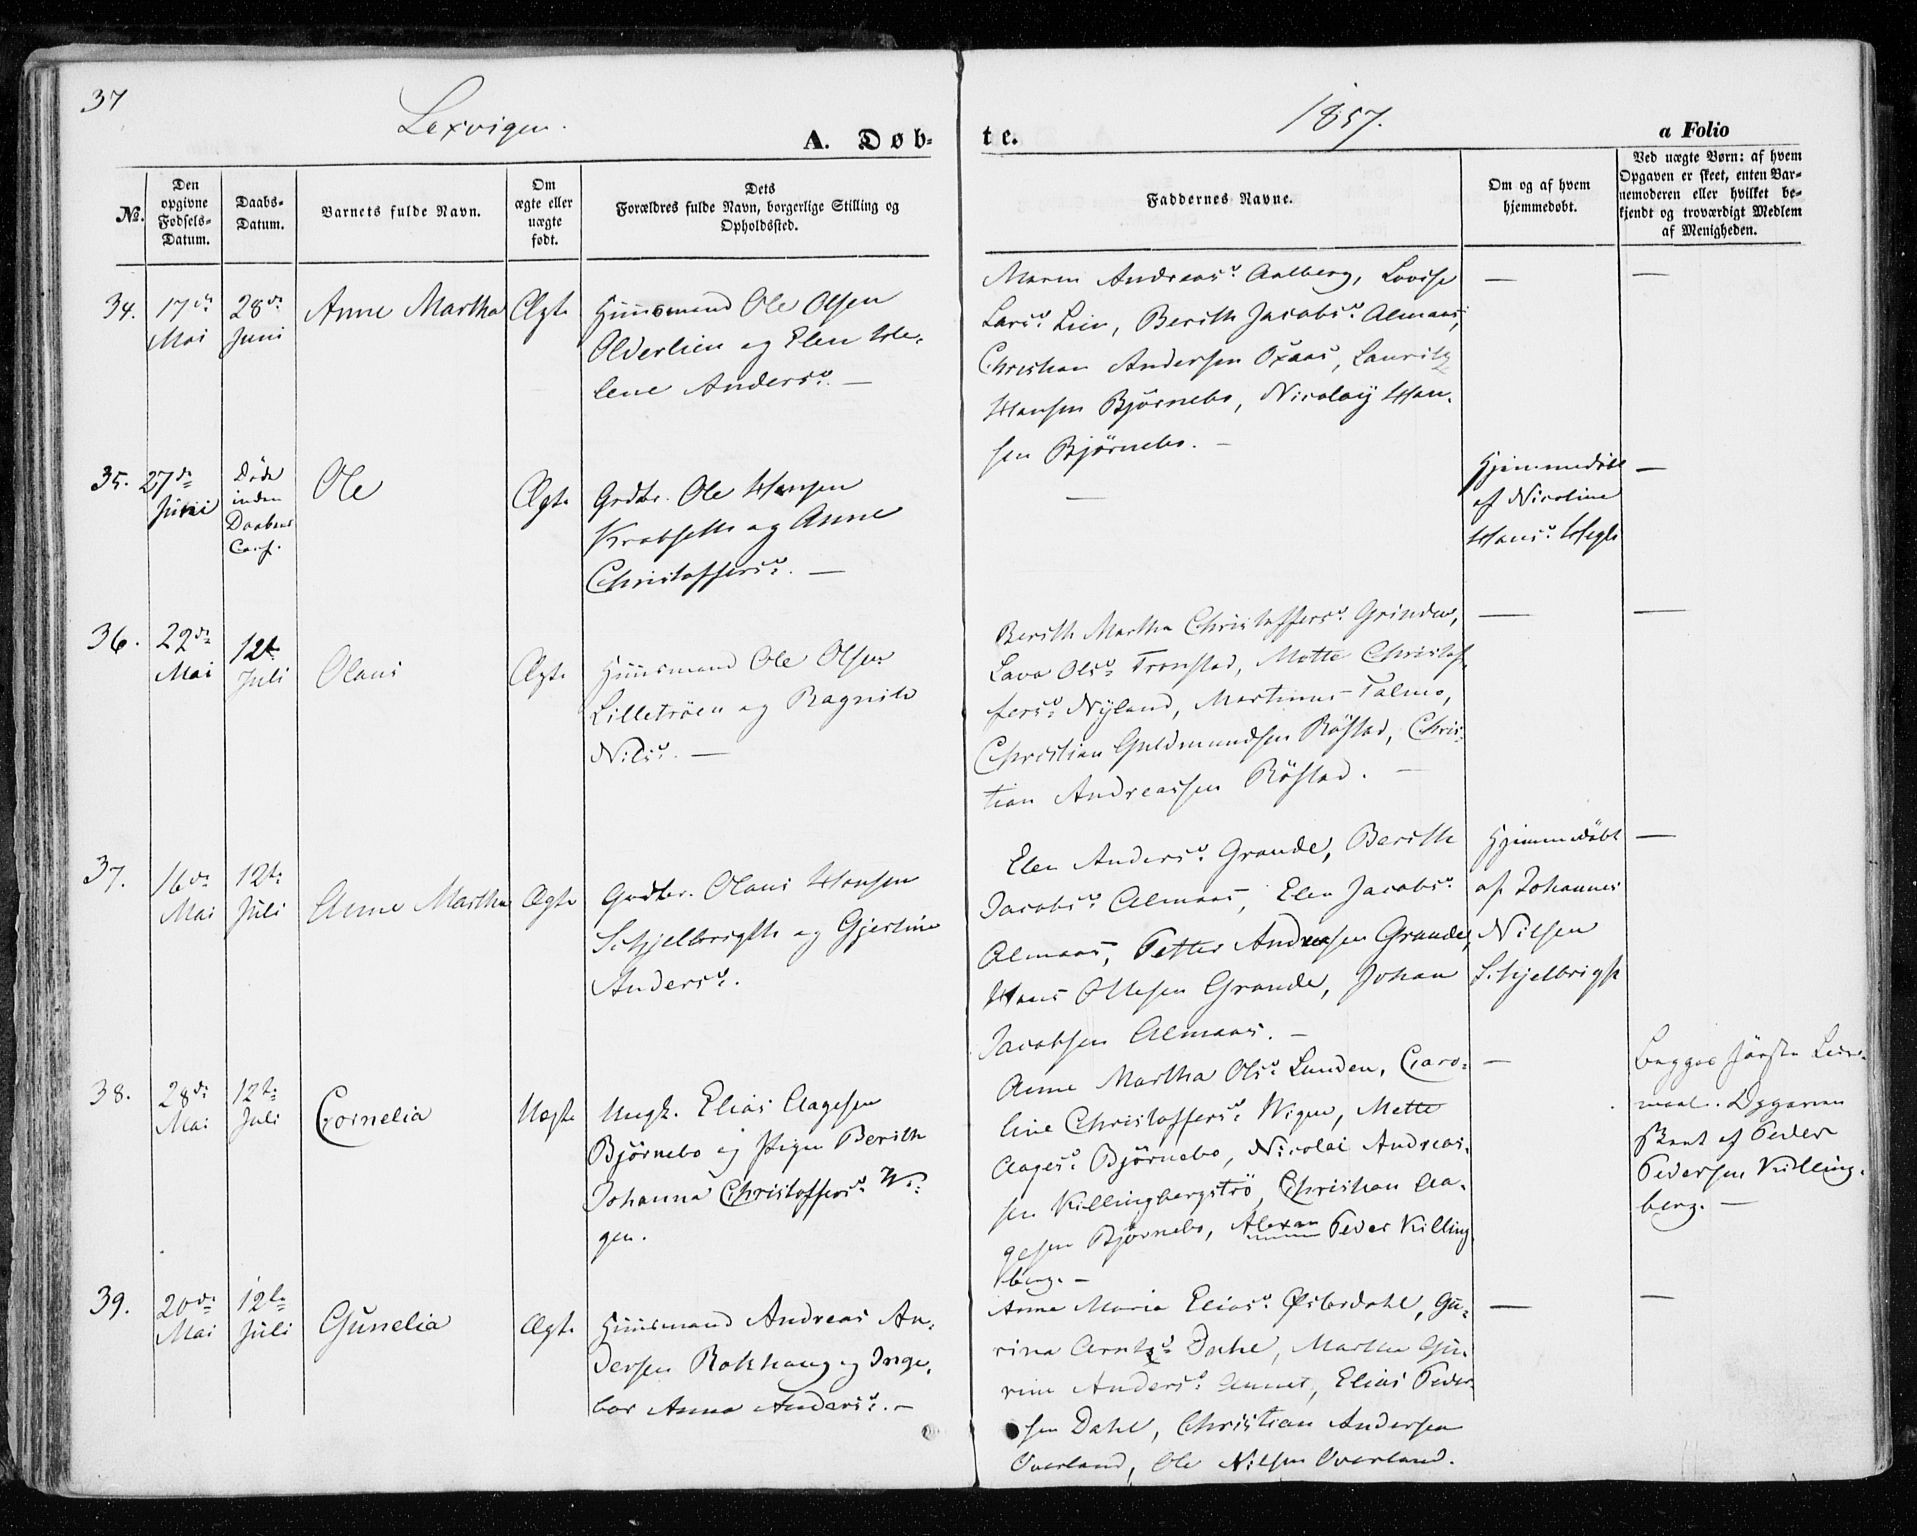 37
Lexvigen.
1857.
A. Døb-
te.
a Folio
No.
Den opgivne Fødsels-Datum.
Daabs-Datum.
Barnets fulde Navn.
Om ægte eller uægte født.
Dets Forældres fulde Navn, borgerlige Stilling og Opholdssted.
Faddernes Navne.
Om og af hvem hjemmedøbt.
Ved uægte Børn: af hvem Opgaven er skeet, enten Barnemoderen eller hvilket bekjendt og troværdigt Medlem af Menigheden.
34.
17de
Mai
28de
Juni
Anne Martha
Ægte
Huusmand Ole Olsen
Olderlien og Elen He-
lene Andersd. —
Maren Andreasd. Aalberg, Lovise
Larsd. Lien, Berith Jacobsd. Almaas,
Christian Andersen Oxaas, Lauritz
Hansen Bjørnebo, Nicolay Han-
sen Bjørnebo. —
—
—
35.
27de
Juni
Døde
inden
Daabens
Conf.
Ole
Ægte
Grdbr. Ole Hansen
Krabseth og Anne
Christoffersd. —
—
Hjemmedøbt
af Nicoline
Hansd. Hegle
—
36.
22de
Mai
12te
Juli
Olaus
Ægte
Huusmand Ole Olsen
Lilletrøen og Ragnild
Nilsd. —
Berith Martha Christoffersd. Grinden,
Lava Olsd. Tronstad, Mette Christof-
fersd. Nyland, Martinus Palmo,
Christian Guldmundsen Røstad, Chris-
tian Andreassen Røstad. —
—
—
37.
16de
Mai
12te
Juli
Anne Martha
Ægte
Grdbr. Olaus Hansen
Schjelbrigth og Gjertine
Andersd.
Elen Andersd. Grande, Berith
Jacobsd. Almaas, Elen Jacobsd.
Almaas, Petter Andreasen Grande,
Hans Ottesen Grande, Johan
Jacobsen Almaas. —
Hjemmedøbt
af Johannes
Nilsen
Schjelbrigt
—
38.
28de
Mai
12te
Juli
Cornelia
Uægte
Ungk. Elias Aagesen
Bjørnebo og Pigen Berith
Johanna Christoffersd. Wi-
gen.
Anne Martha Olsd. Lunden, Caro-
line Christoffersd. Wigen, Mette
Aagesd. Bjørnebo, Nicolai Andreas-
sen Killingbergstrø, Christian Aa-
gesen Bjørnebo, Alexan Peder Killing-
berg. —
—
Begges første Leier-
maal. Opgaven
skeet af Peder
Pedersen Killing-
berg. —
39.
20de
Mai
12te
Juli
Gunelia
Ægte
Huusmand Andreas An-
dersen Rokhaug og Inge-
bor Anna Andersd. —
Anne Maria Eliasd. Østerdahl, Gu-
rina Arntsd. Dahl, Martha Gu-
rine Andersd. Aunet, Elias Peder-
sen Dahl, Christian Andersen
Overland, Ole Nilsen Overland.
—
—